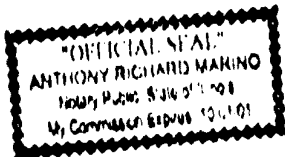 "OFFICIAL SEAL"
ANTHONY RICHARD MARINO
Notary Public State of
My Commission Expires